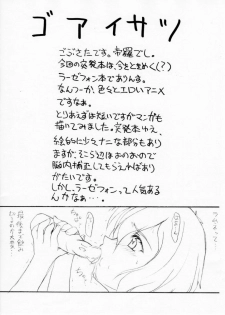 ゴアイサツ
ごぶさたです。帝羅でし。
今回の突発本は、今をときめく(?)
ラーゼフォン本でありんす。
なんつーか、色々とエロいアニメ
ですなぁ。
とりあえずは短いですがマンガも
描いてみました。突発本ゆえ、
絵的に少々ナニな部分もあり
ますが、そこら辺はおのおので
脳内補正してもらえればあり
がたいです。
しかし、ラーゼフォンって人気ある
んかなぁ…。